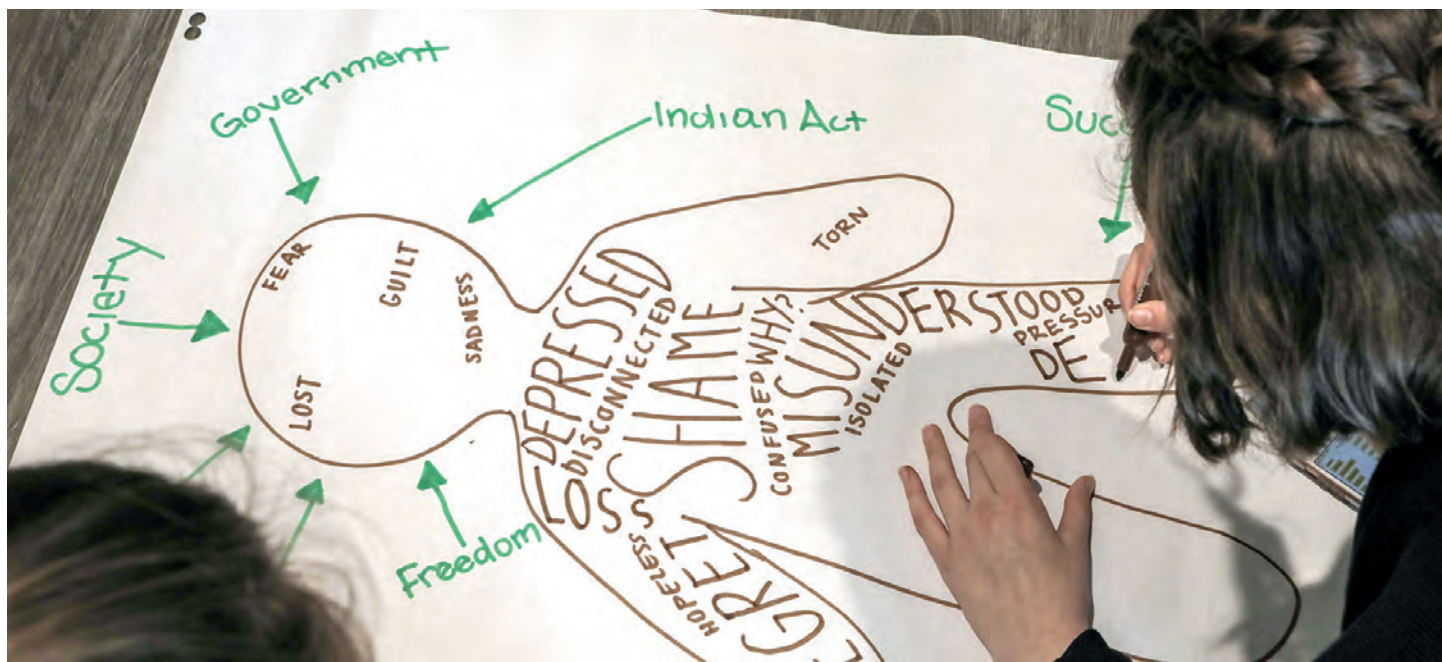 Government
Indian Act
Society
Freedom
FEAR
GUILT
SADNESS
LOST
TORN
DEPRESSED
DISCONNECTED
LOSS
SHAME
CONFUSED WHY?
MISUNDERSTOOD
ISOLATED
PRESSUR
DE
HOPELESS
GRET